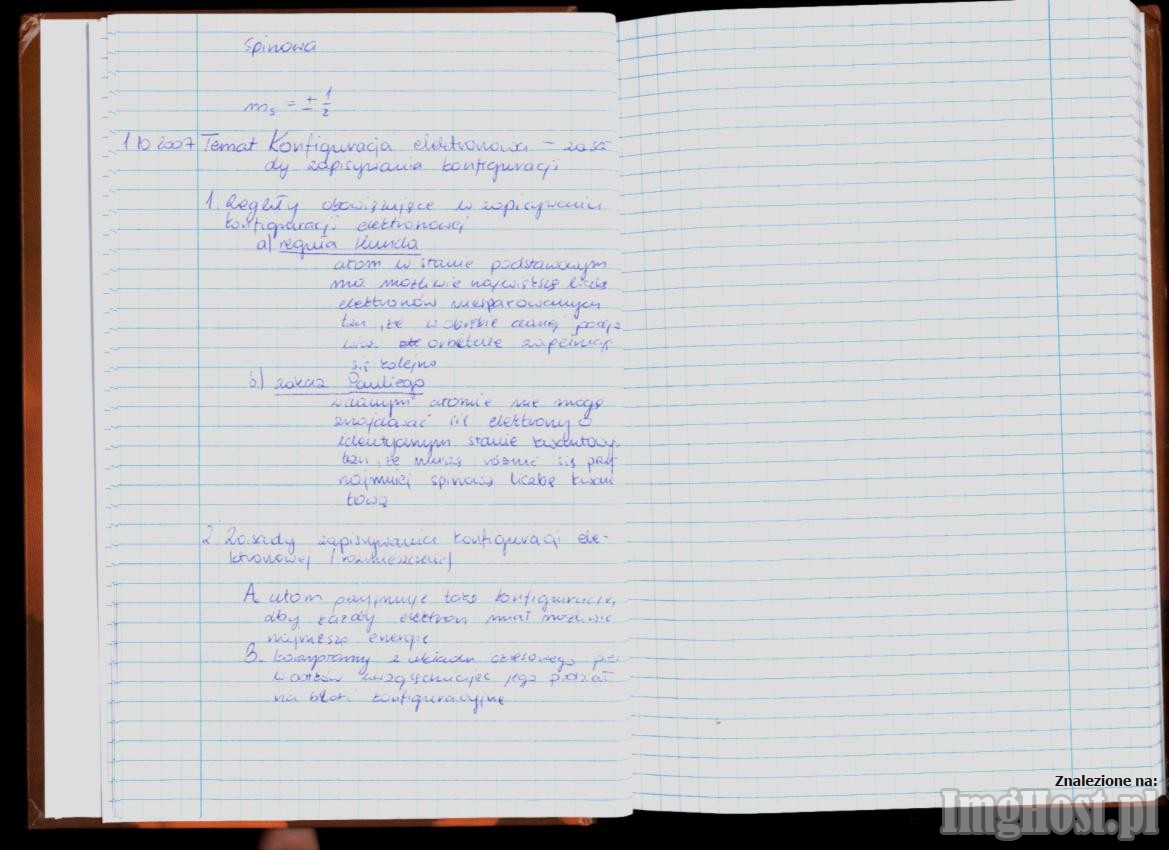 spinowa
m_s = ± 1/2
1 10 2007 Temat Konfiguracja elektronowa – zasa
dy zapisywania konfiguracji
1. Reguły obowiązujące w zapisywaniu
konfiguracji elektronowej
a) reguła Hunda
atom w stanie podstawowym
ma możliwie największą liczbę
elektronów niesparowanych
tzn, że w obrębie danej podpo
włok orbitale zapełniają
się kolejno
b) zakaz Pauliego
w danym atomie nie mogą
znajdować się elektrony o
identycznym stanie kwantowym
tzn, że muszą różnić się przy
najmniej spinową liczbą kwan
tową
2 Zasady zapisywania konfiguracji ele-
ktronowej (rozmieszczenie)
A atom przyjmuje taką konfigurację,
aby każdy elektron miał możliwie
najniższą energię
B. korzystamy z układu okresowego pier
wiastków uwzględniając jego podział
na bloki konfiguracyjne
Znalezione na:
ImgHost.pl